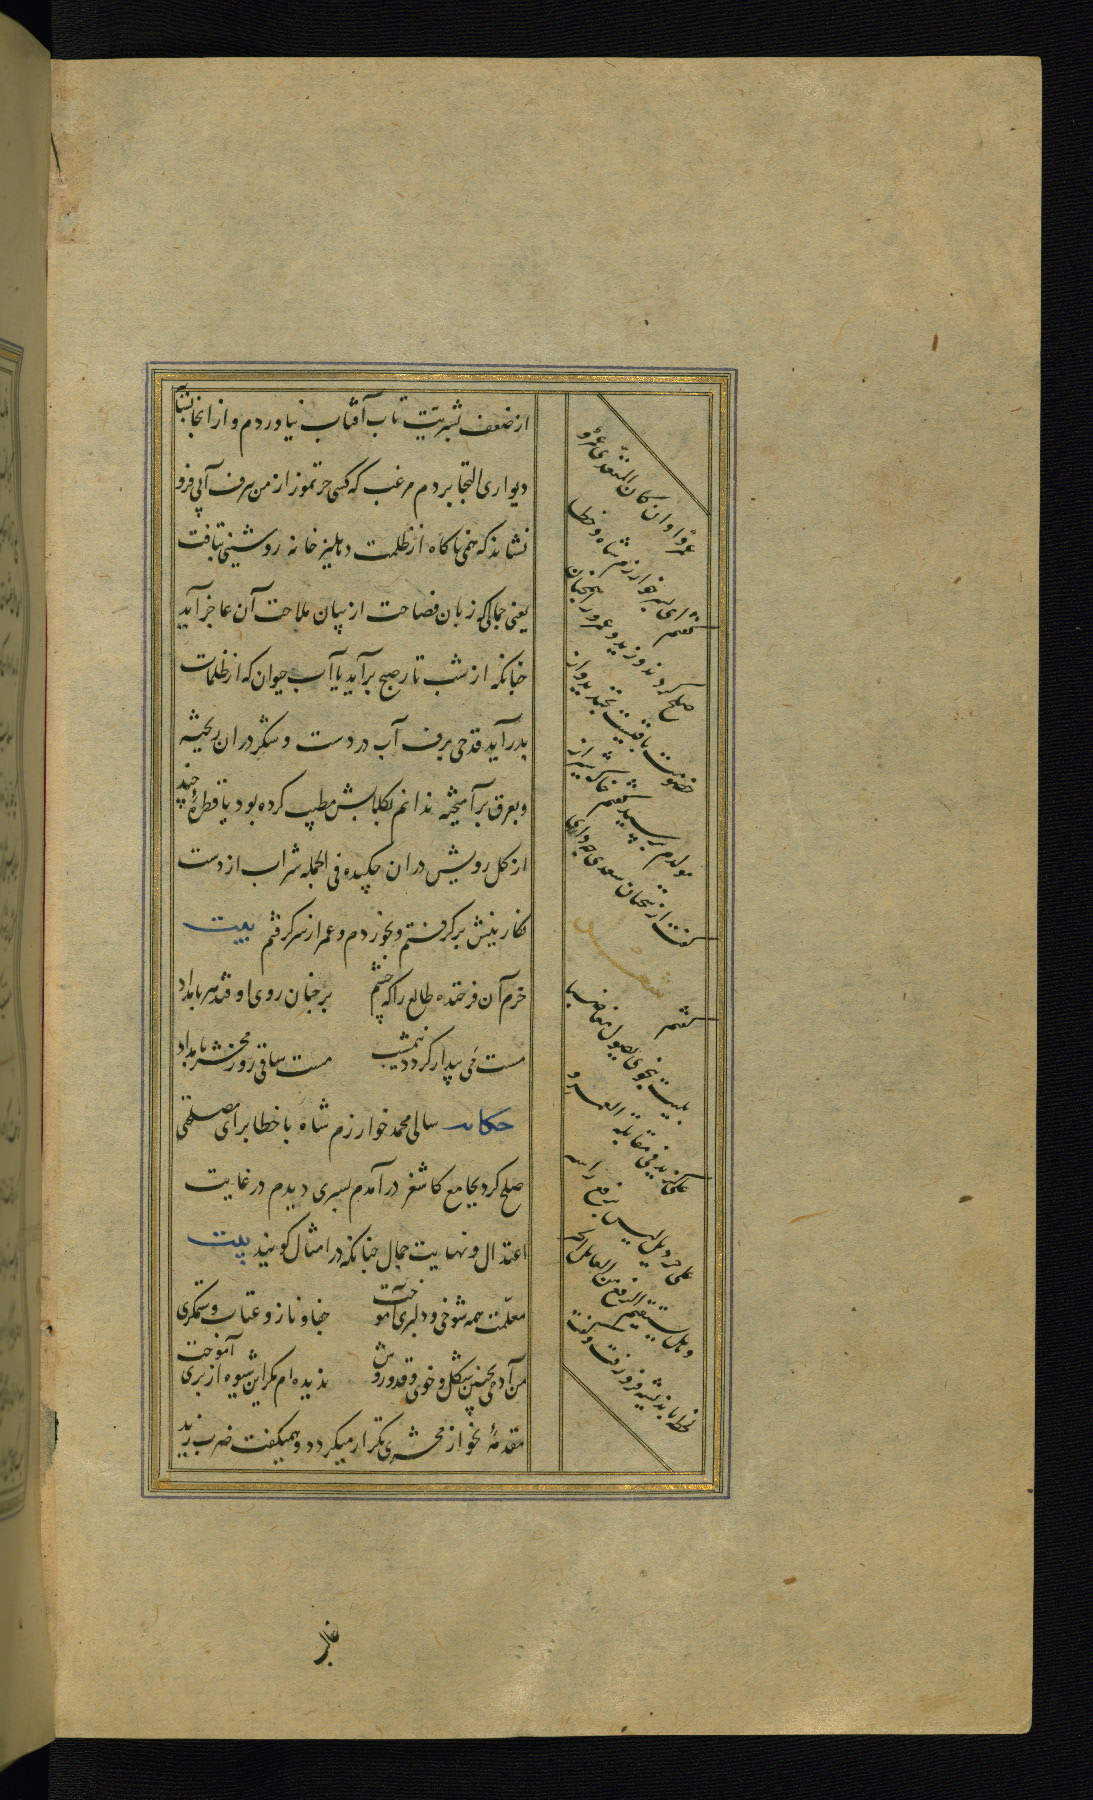 از ضعف بشریت تاب آفتاب نیاوردم و از انجا بسایه
دیواری التجا بردم مرغب که کسی حر تموز از من ببرف آبی فرو
نشاند که همی ناکاه از ظلمت دهلیز خانه روشنی بتافت
یعنی جمالی که زبان فصاحت از بیان ملاحت آن عاجز آید
چنانکه از شب تار صبح برآید یا آب حیوان که از ظلمات
بدر آید قدحی برف آب در دست و شکر در ان ریخته
و بعرق برآمیخته ندانم بکلابش مطیب کرده بود یا قطره چند
از کل رویش در ان چکیده فی الجمله شراب از دست
نکارینش برکرفتم و بخوردم و عمر از سر کرفتم بیت
خرم آن فرخنده طالع را که چشم بر چنان روی اوفتد هر بامداد
مست می بیدار کردد نیمشب مست ساقی روز محشر بامداد
حکایت سالی محمد خوارزم شاه با خطا برای مصلحتی
صلح کرد بجامع کاشغر درآمدم پسری دیدم در غایت
اعتدال و نهایت جمال چنانکه در امثال کویند بیت
معلمت همه شوخی و دلبری آموخت جفا و ناز و عتاب و ستمکری آموخت
من آدمی بچنین شکل و خوی و قد و روش ندیده ام مکر این شیوه از پری
مقدمهٔ نحو از محشری تکرار میکرد و همیکفت ضرب زید
عمروا و ان کان المتعدی عمرو
کفتم ای پسر خوارزم شاه و خطا
صلح کردند و زید و عمرو را همچنان
خصومت باقیست بخندید و از
مولدم پرسید کفتم خاک شیراز
کفت از سخنان سعدی چه داری
کفتم شعر
بلیت بنحوی یصول مغاضبا
علی کزید فی مقابلة العمرو
علی جر ذیل لیس یرفع راسه
و هل یستقیم الرفع من العامل الجر
لختی باندیشه فرو رفت و کفت
غالب